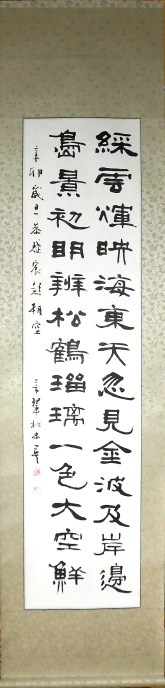 綵雲煇映海東天忽見金波及岸邊
島景初明辨松鶴瑠璃一色大空鮮
辛卯歲旦恭